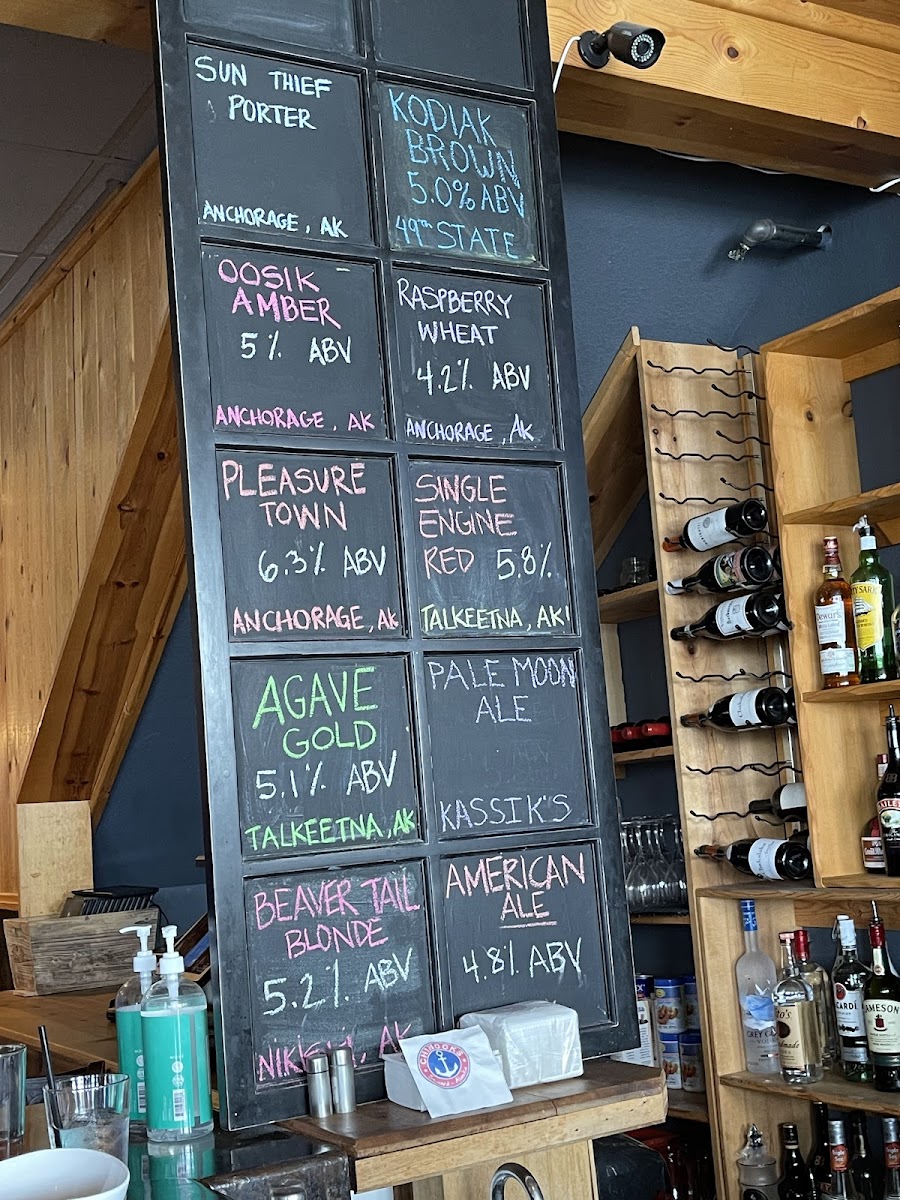 SUN THIEF
PORTER
ANCHORAGE, AK
KODIAK
BROWN
5.0% ABV
49TH STATE
OOSIK
AMBER
5% ABV
ANCHORAGE, AK
RASPBERRY
WHEAT
4.2% ABV
ANCHORAGE, AK
PLEASURE
TOWN
6.3% ABV
ANCHORAGE, AK
SINGLE
ENGINE
RED 5.8%
TALKEETNA, AK
AGAVE
GOLD
5.1% ABV
TALKEETNA, AK
PALE MOON
ALE
KASSIK'S
BEAVER TAIL
BLONDE
5.2% ABV
AK
AMERICAN
ALE
4.8% ABV
CHINOOKS
Dewar's
JAMESON